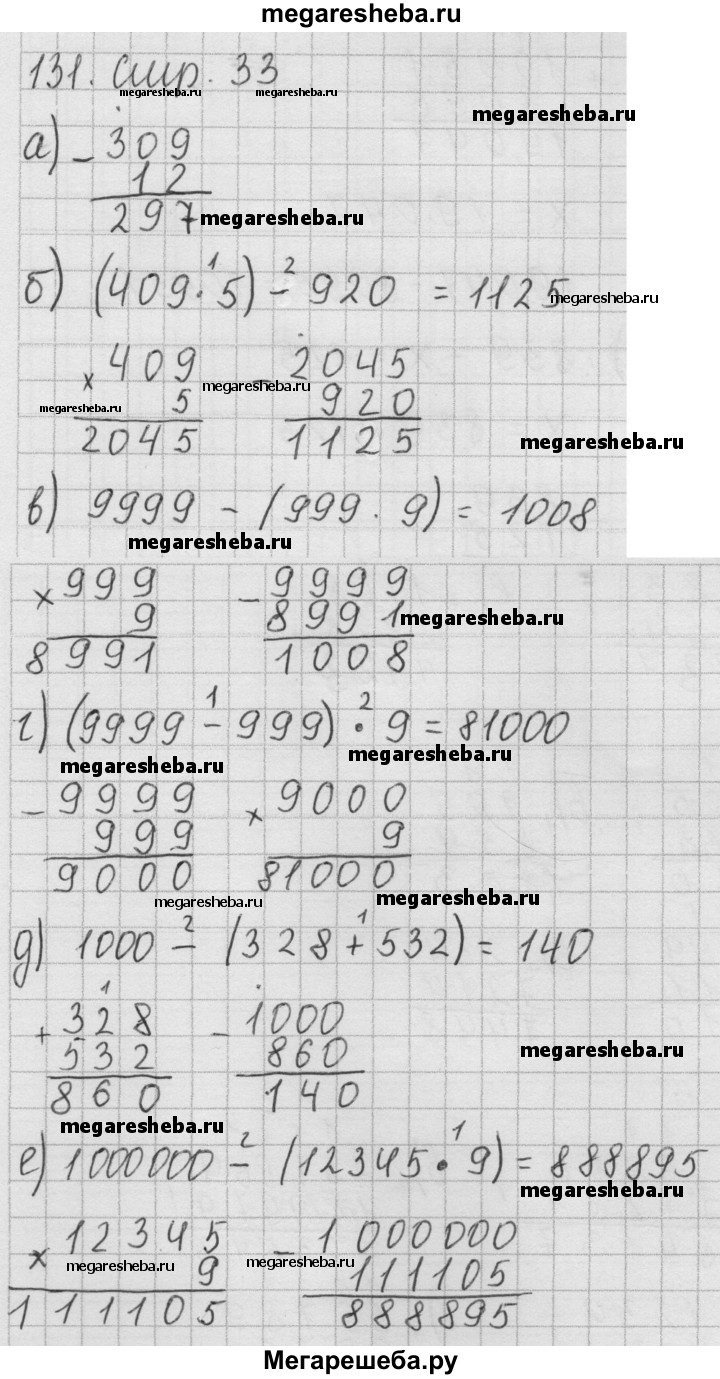 megaresheba.ru
131. стр. 33
megaresheba.ru megaresheba.ru
megaresheba.ru
а) - 309
12
297 megaresheba.ru
1 2
б) (409·5) - 920 = 1125
megaresheba.ru
× 409 - 2045
megaresheba.ru
megaresheba.ru 5 920
2045 1125 megaresheba.ru
в) 9999 - (999 · 9) = 1008
megaresheba.ru
× 999 - 9999
9 8991 megaresheba.ru
8991 1008
1 2
г) (9999 - 999) · 9 = 81000
megaresheba.ru megaresheba.ru
- 9999 × 9000
999 9
9000 81000
megaresheba.ru megaresheba.ru
2 1
д) 1000 - (328 + 532) = 140
1
+ 328 - 1000
532 860 megaresheba.ru
860 140
megaresheba.ru
2 1
е) 1000000 - (12345 · 9) = 888895
megaresheba.ru
× 12345 - 1000000
megaresheba.ru 9 megaresheba.ru 111105
111105 888895
Мегарешеба.ру